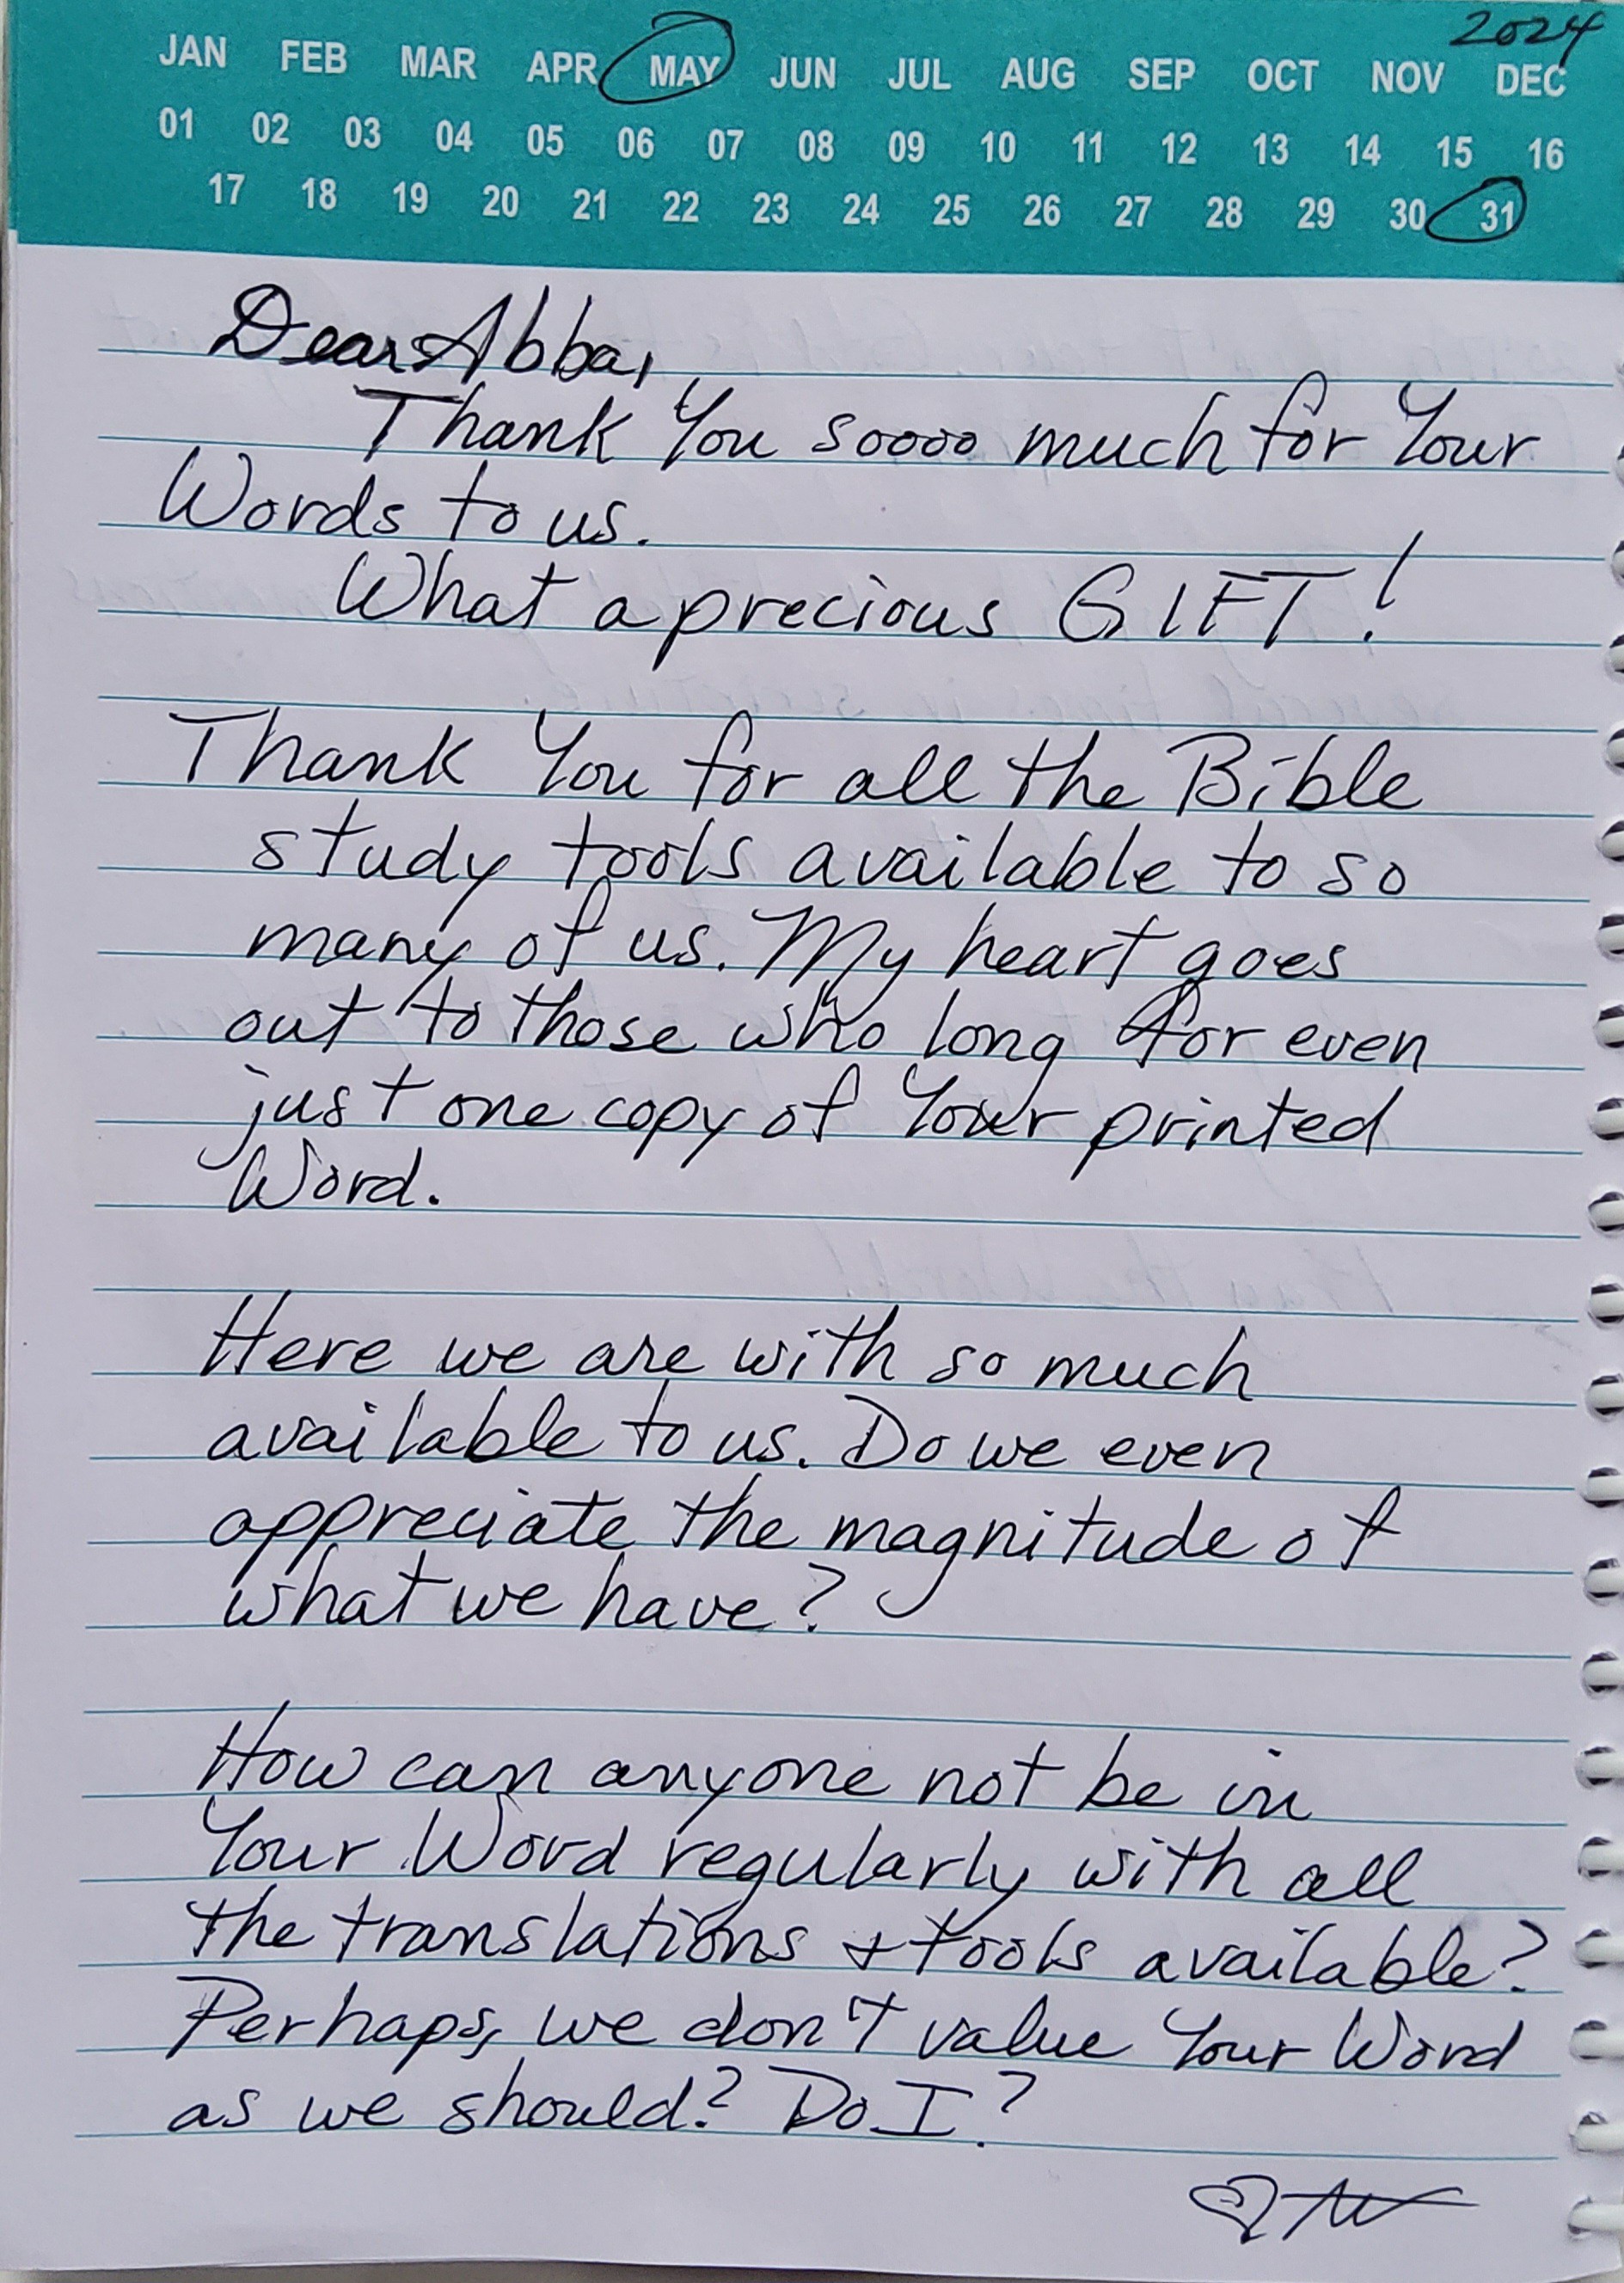 2024
JAN FEB MAR APR MAY JUN JUL AUG SEP OCT NOV DEC
01 02 03 04 05 06 07 08 09 10 11 12 13 14 15 16
17 18 19 20 21 22 23 24 25 26 27 28 29 30 31
Dear Abba,
Thank You soooo much for Your
Words to us.
What a precious GIFT!
Thank You for all the Bible
study tools available to so
many of us. My heart goes
out to those who long for even
just one copy of Your printed
Word.
Here we are with so much
available to us. Do we even
appreciate the magnitude of
what we have?
How can anyone not be in
Your Word regularly with all
the translations + tools available?
Perhaps, we don't value Your Word
as we should? Do I?